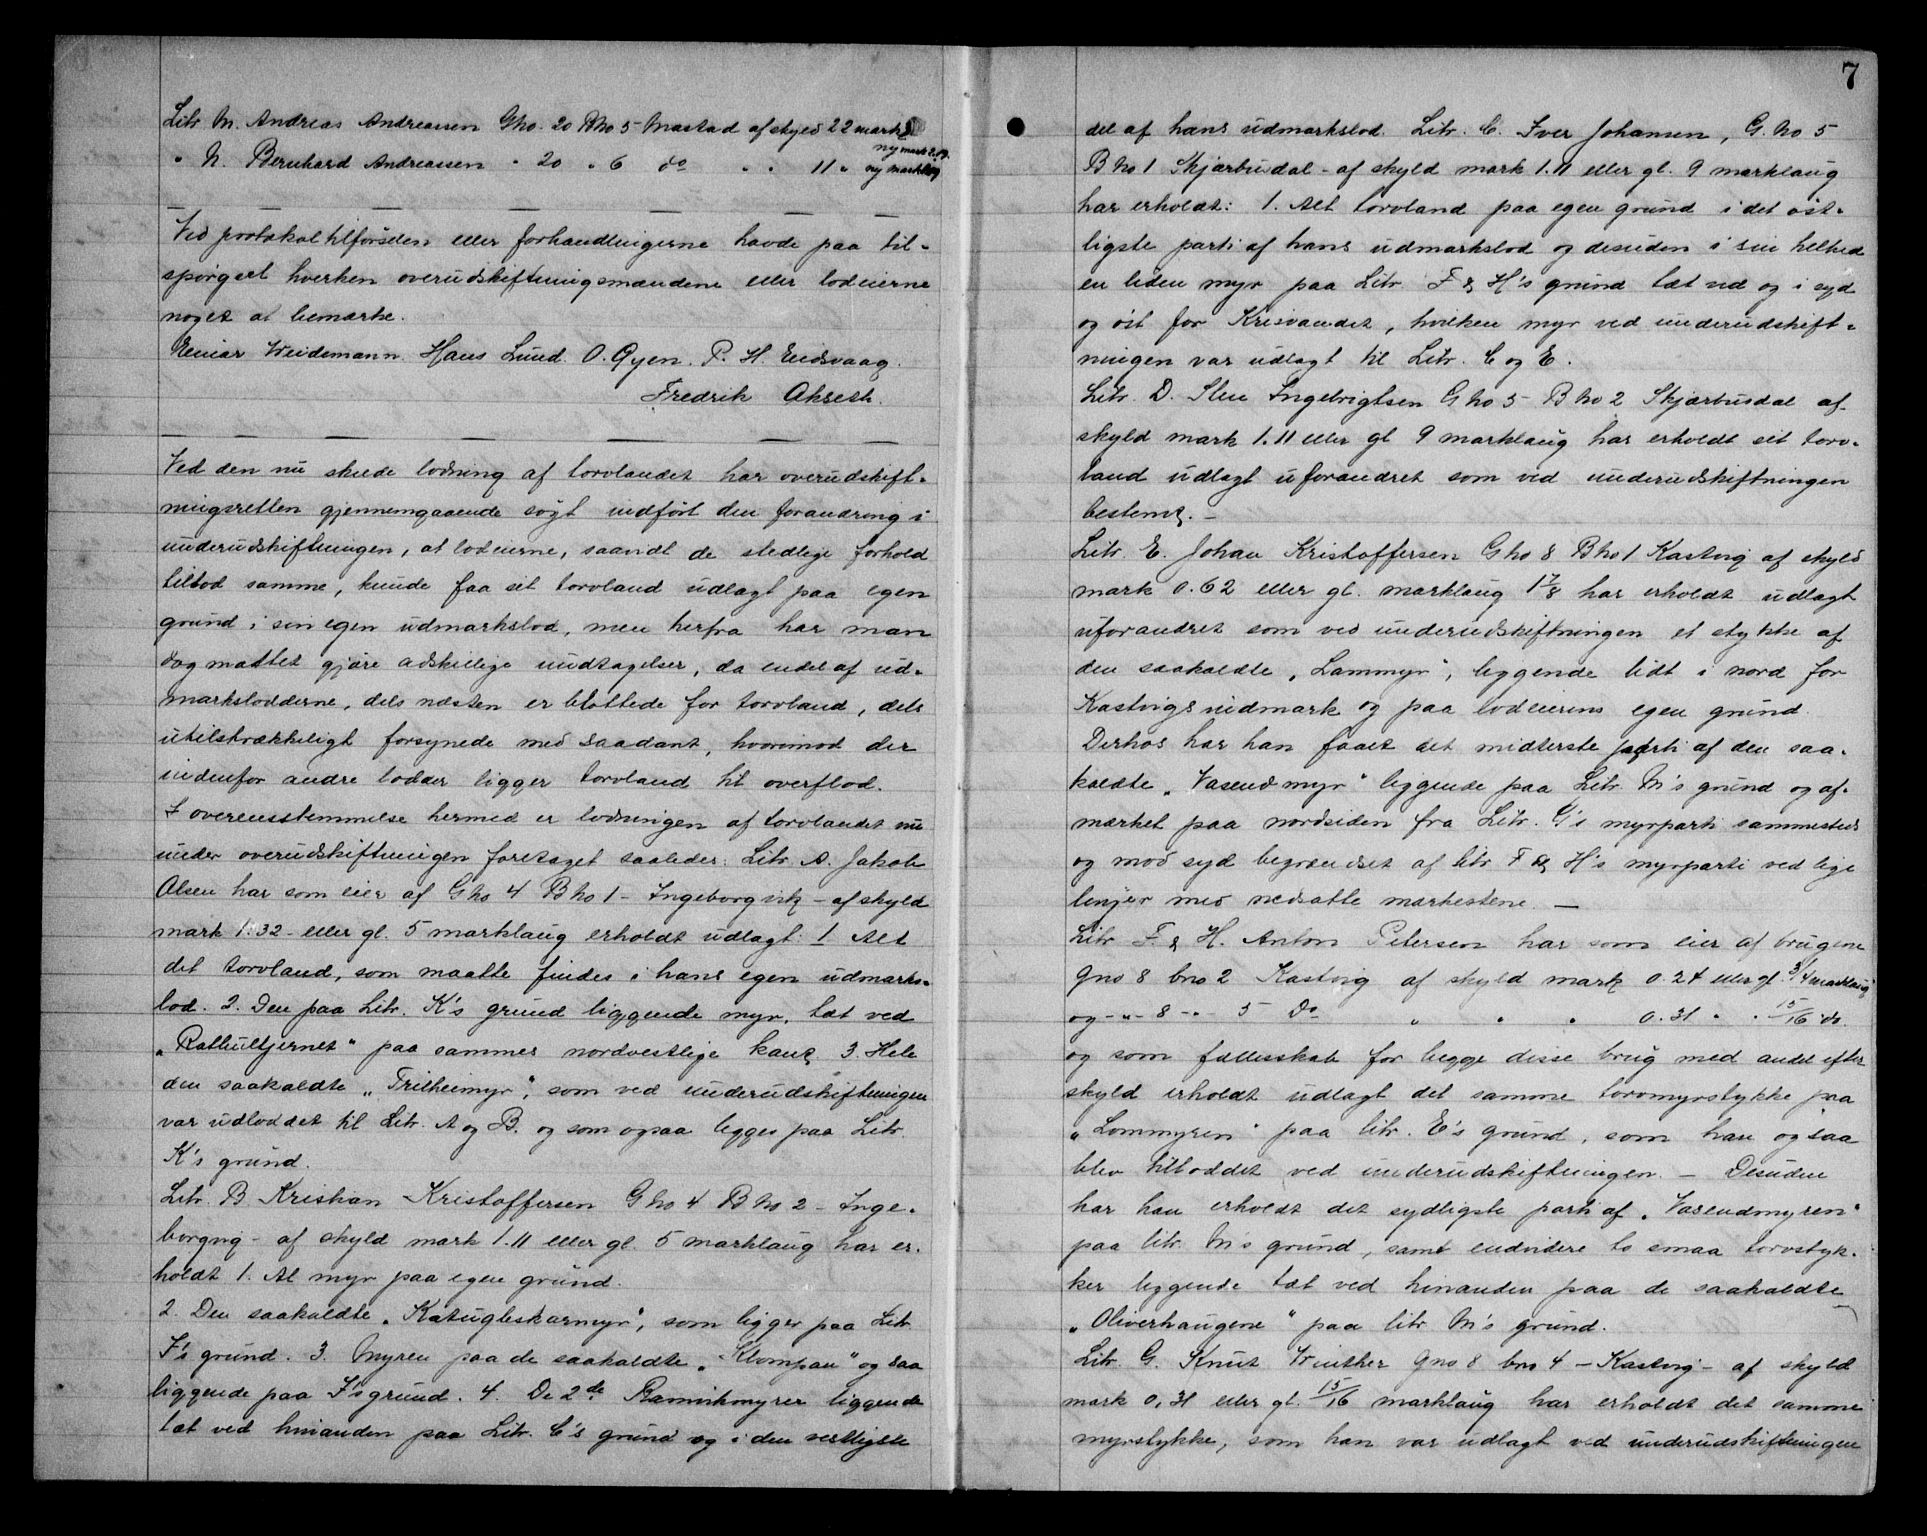 Litr M. Andreas Andreassen Gno. 20 Bno 5 Mastad af skyld 22 markl
ny mark 2.09
" N. Bernhard Andreassen " 20 " 6 do " " 11 " ny mark
Ved protokoltilførslen eller forhandlingerne havde paa til-
spørgsel hverken overudskiftningsmændene eller lodeierne
noget at bemærke.
Einar Weidemann. Hans Lund. O. Gyen. P. H. Eidsvaag.
Fredrik Akseth.
Ved den nu skede lodning af torvlandet har overudskift-
ningsretten gjennemgaaende søgt indført den forandring i
underudskiftningen, at lodeierne, saavidt de stedlige forhold
tillod samme, kunde faa sit torvland udlagt paa egen
grund i sin egen udmarkslod, men herfra har man
dog mattet gjøre adskillige undtagelser, da endel af ud-
markslodderne, dels næsten er blottede for torvland, dels
utilstrækkeligt forsynede med saadant, hvorimod der
indenfor andre lodder ligger torvland til overflod.
I overensstemmelse hermed er lodningen af torvlandet nu
under overudskiftningen foretaget saaledes: Litr A. Jakob
Olsen har som eier af Gno 4 Bno 1 - Ingeborgvik - af skyld
mark 1.32 - eller gl. 5 marklaug erholdt udlagt: 1. Alt
det torvland, som maatte findes i hans egen udmarks-
lod. 2. Den paa Litr. K's grund liggende myr, tæt ved
"Rathultjernet" paa sammes nordvestlige kant. 3. Hele
den saakaldte "Trilheimyr", som ved underudskiftningen
var udloddet til Litr. A og B. og som ogsaa ligger paa Litr.
K's grund.
Litr. B Kristian Kristoffersen Gno 4 Bno 2 - Inge-
borgvig - af skyld mark 1.11 eller gl. 5 marklaug har er-
holdt 1. Al myr paa egen grund.
2. Den saakaldte "Katugleskarmyr", som ligger paa Litr
I's grund. 3. Myren paa de saakaldte "Klompan" ogsaa
liggende paa I's grund. 4. De 2de Ramnikmyrer liggende
tæt ved hinanden paa Litr. C's grund og i den vestligste
7
del af hans udmarkslod. Litr. C. Iver Johansen, G. no 5
Bno 1 Skjærbusdal - af skyld mark 1.11 eller gl. 9 marklaug
har erholdt: 1. Alt torvland paa egen grund i det øst-
ligste parti af hans udmarkslod og desuden i sin helhed
en liden myr paa Litr. F & H's grund tæt ved og i syd
og øst for Krisvandet, hvilken myr ved underudskift-
ningen var udlagt til Litr. C og E.
Litr. D. Sten Ingebrigtsen Gno 5 Bno 2 Skjærbusdal af
skyld mark 1.11 eller gl 9 marklaug har erholdt sit torv-
land udlagt uforandret som ved underudskiftningen
bestemt. -
Litr. E. Johan Kristoffersen Gno 8 Bno 1 Kastvig af skyld
mark 0.62 eller gl. marklaug 1 7/8 har erholdt udlagt
uforandret som ved underudskiftningen et stykke af
den saakaldte "Lammyr", liggende lidt i nord for
Kastvigs indmark og paa lodeierens egen grund.
Derhos har han faaet det midterste parti af den saa-
kaldte "Vasendmyr" liggende paa Litr. M's grund og af-
mærket paa nordsiden fra Litr. G's myrparti sammesteds
og mod syd begrændset af litr F & H's myrparti ved lige
linjer med nedsatte markestene. -
Litr. F & H. Anton Petersen har som eier af brugene
gno 8 bno 2 Kastvig af skyld mark 0.24 eller gl. 3/4 marklaug
og -"- 8 -"- 5 Do " " " 0.31 " " 15/16 do.
og som fællesskab for begge disse brug med andel efter
skyld erholdt udlagt det samme torvmyrstykke paa
"Lommyren" paa litr. E's grund, som han ogsaa
blev tilloddet ved underudskiftningen. - Desuden
har han erholdt det sydligste parti af "Vasendmyren"
paa litr. M's grund, samt endvidere to smaa torvstyk-
ker liggende tæt ved hinanden paa de saakaldte
"Oliverhaugene" paa litr M's grund.
Litr. G. Knut Winther gno 8 bno 4 - Kastvig - af skyld
mark 0,31 eller gl. 15/16 marklaug har erholdt det samme
myrstykke, som han var udlagt ved underudskiftningen